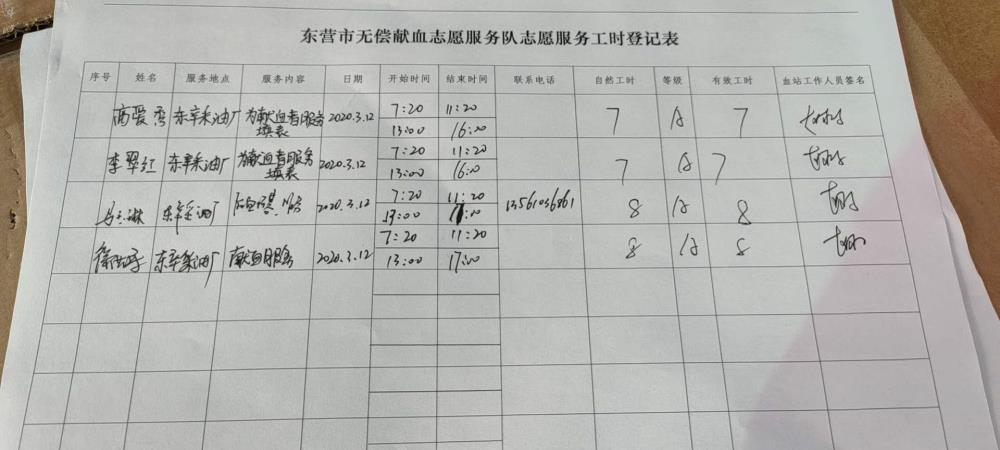 东营市无偿献血志愿服务队志愿服务工时登记表
序号 姓名 服务地点 服务内容 日期 开始时间 结束时间 联系电话 自然工时 等级 有效工时 血站工作人员签名
高爱 东辛采油厂 为献血者服务 填表 2020.3.12 7:20 11:20 7 A 7
13:00 16:00
李翠红 东辛采油厂 为献血者服务 填表 2020.3.12 7:20 11:20 7 A 7
13:00 16:00
东辛采油厂 服务 2020.3.12 7:20 11:20 13561036861 8 A 8
13:00
东辛采油厂 献血服务 2020.3.12 7:20 11:20 8 A 8
13:00 17:00